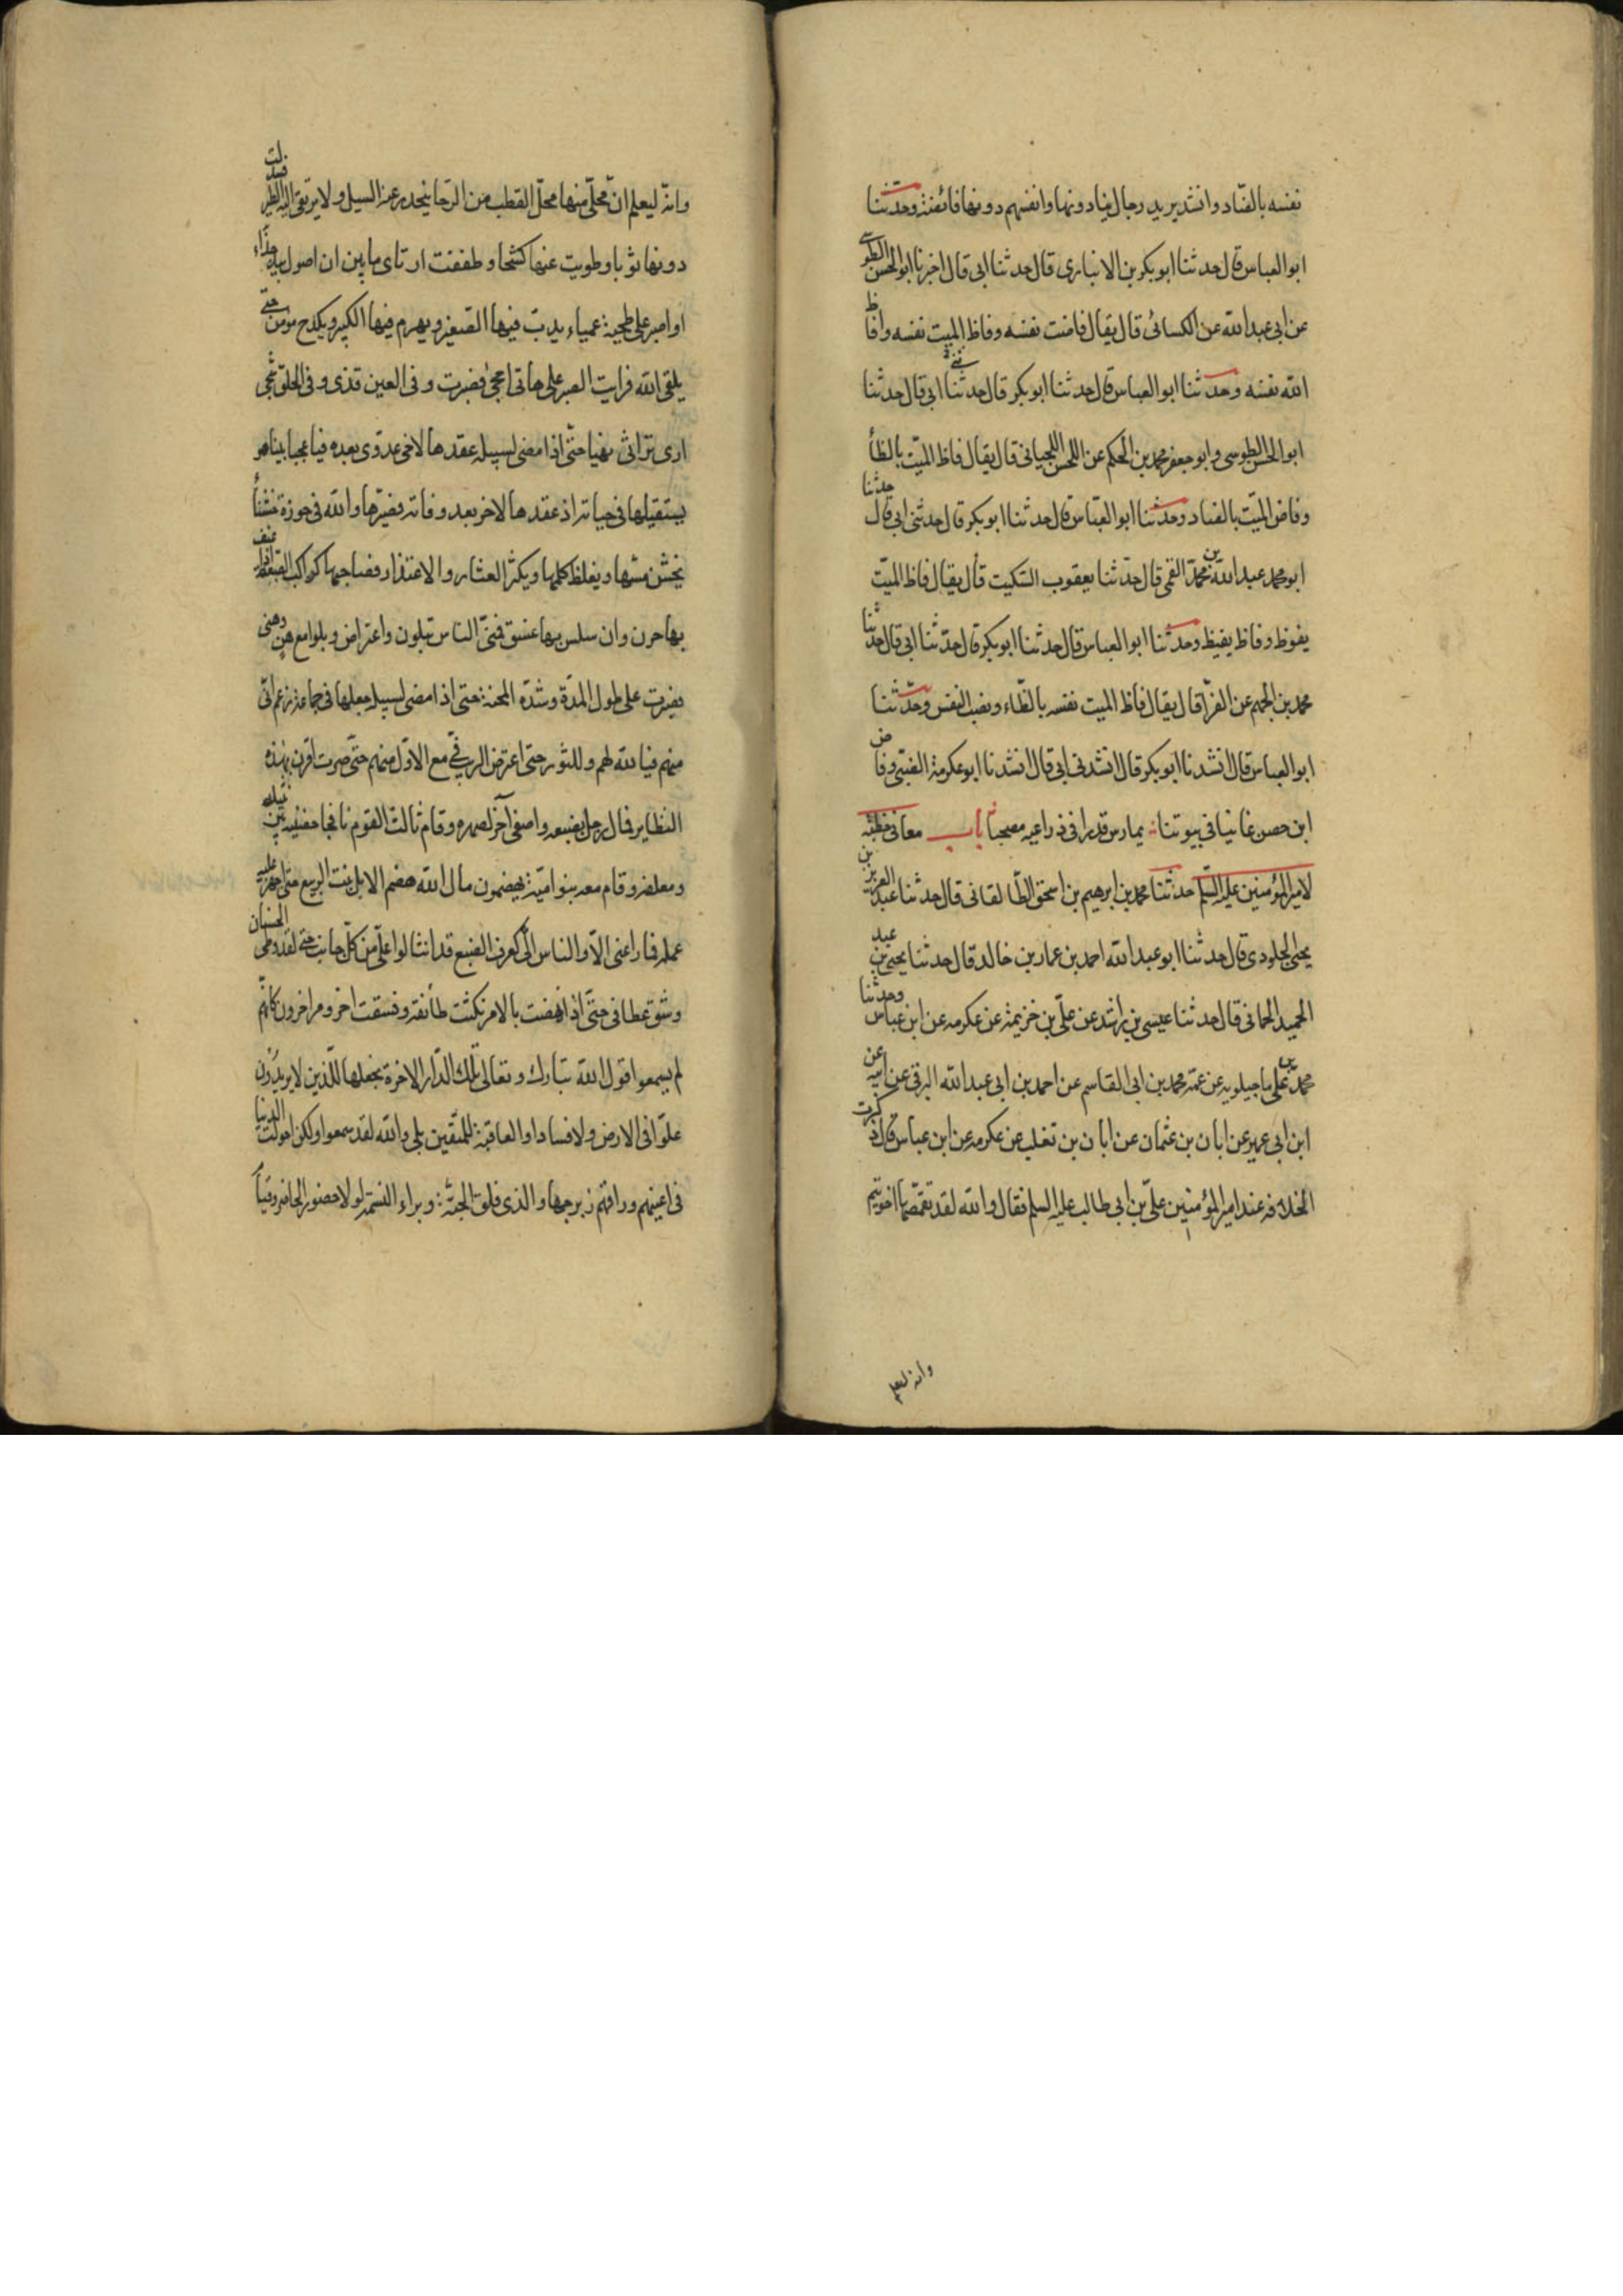 نفسه بالضاد وانشد يريد رجال ينادونها وانفسهم دونها فائضة وحدثنا
ابو العباس قال حدثنا ابو بكر بن الانباري قال حدثنا ابي قال اخبرنا ابو الحسن الطوسي
عن ابي عبد الله عن الكسائي قال يقال فاضت نفسه وفاظ الميت نفسه وافاظ
الله نفسه وحدثنا ابو العباس قال حدثنا ابو بكر قال حدثنا ابي قال حدثنا
ابو الحسن الطوسي وابو جعفر محمد بن الحكم عن اللحسن اللحياني قال يقال فاظ الميت بالظأ
وفاض الميت بالضاد وحدثنا ابو العباس قال حدثنا ابو بكر قال حدثني ابي قال حدثنا
ابو محمد عبد الله بن محمد القمي قال حدثنا يعقوب السكيت قال يقال فاظ الميت
يفوظ وفاظ يفيظ وحدثنا ابو العباس قال حدثنا ابو بكر قال حدثنا ابي قال حدثنا
محمد بن الجهم عن الفرّا قال يقال فاظ الميت نفسه بالظاء ونصب النفس وحدثنا
ابو العباس قال انشدنا ابو بكر قال انشدني ابي قال انشدنا ابو عكرمة الضبّي وفاض
ابن حصن غانيا في بيوتنا يمارس قدرا في ذراعيه مصحبا باب معاني خطبة
لامير المؤمنين عليه السلم حدثنا محمد بن ابرهيم بن اسحق الطالقاني قال حدثنا عبد العزيز بن
يحيى الجلودي قال حدثنا ابو عبد الله احمد بن عمار بن خالد قال حدثنا يحيى بن عبد
الحميد الحماني قال حدثنا عيسى بن راشد عن علي بن خزيمة عن عكرمه عن ابن عباس وحدثنا
محمد بن علي ماجيلويه عن عمه محمد بن ابي القاسم عن احمد بن ابي عبد الله البرقي عن ابيه عن
ابن ابي عمير عن ابان بن عثمان عن ابان بن تغلب عن عكرمه عن ابن عباس قال ذكرت
الخلافه عند امير المؤمنين علي بن ابي طالب عليه السلم فقال والله لقد تقمصها اخو تيم
وانه ليعلم
وانه ليعلم ان محلي منها محل القطب من الرحا ينحدر عنه السيل ولا يرتقي اليه الطير فسدلت
دونها ثوبا وطويت عنها كشحا وطفقت ارتاي ما بين ان اصول بيد جذاء
او اصبر على طخية عمياء يدب فيها الصغير ويهرم فيها الكبير ويكدح مؤمن حتى
يلقى الله فرايت الصبر على هاتى احجى فصبرت وفي العين قذى وفي الحلق شجى
ارى تراثي نهبا حتى اذا مضى لسبيله عقدها لاخي عدوى بعده فيا عجبا بينا هو
يستقيلها في حياته اذ عقدها لاخر بعد وفاته فصيرها والله في حوزة خشنأ
يخشن مسها ويغلظ كلمها ويكثر العثار والاعتذار فصاحبها كراكب الصعبة ان عنف
بها حرن وان سلس بها غسق فمنى الناس بتلون واعتراض وبلوا مع هن وهنى
فصبرت على طول المدة وشدة المحنة حتى اذا مضى لسبيله جعلها في جماعة زعم اني
منهم فيالله لهم وللشورى حتى اعترض الريب في مع الاول منهم حتى صرت اقرن بهذه
النظاير فمال رجل بضبعه واصغى آخر لصهره وقام ثالث القوم نافجا حضنيه بين نثيله
ومعلفه وقام معه بنو امية يهضمون مال الله هضم الابل نبت الربيع حتى اجهز عليه
عمله فما راعني الا والناس الى كعرف الضبع قد انثالوا علي من كل جانب حتى لقد وطى الحسنان
وشق عطافي حتى اذا نهضت بالامر نكثت طائفة وفسقت اخر ومرا خرون كانهم
لم يسمعوا قول الله تبارك وتعالى تلك الدار الاخرة نجعلها للذين لا يريدون
علوا في الارض ولا فسادا والعاقبة للمتقين بلى والله لقد سمعوا ولكن احولت الدنيا
في اعينهم وراقهم زبرجها والذي فلق الحبة وبراء النسمة لولا حضور الحاضر وقيأ